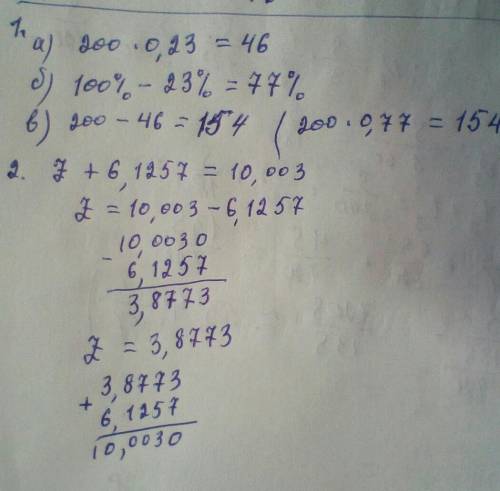 1.
а) 200 · 0,23 = 46
б) 100% - 23% = 77%
в) 200 - 46 = 154 ( 200 · 0,77 = 154
2. Z + 6,1257 = 10,003
Z = 10,003 - 6,1257
- 10,0030
6,1257
3,8773
Z = 3,8773
+ 3,8773
6,1257
10,0030